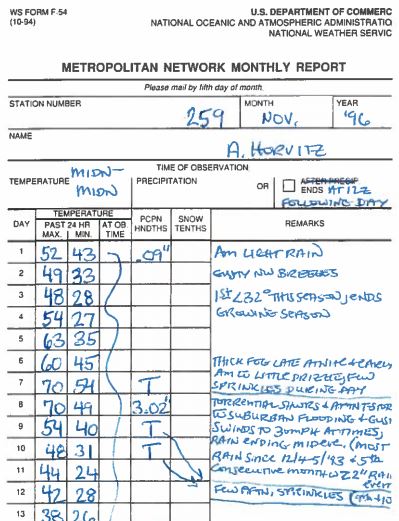 WS FORM F-54
(10-94)
U.S. DEPARTMENT OF COMMERC
NATIONAL OCEANIC AND ATMOSPHERIC ADMINISTRATIO
NATIONAL WEATHER SERVIC
METROPOLITAN NETWORK MONTHLY REPORT
Please mail by fifth day of month.
STATION NUMBER
259
MONTH
NOV.
YEAR
'96
NAME
A. HORVITZ
TIME OF OBSERVATION
TEMPERATURE MIDN-
MIDN
PRECIPITATION
OR
AFTER PRECIP
ENDS AT 12Z
FOLLOWING DAY
DAY
TEMPERATURE
PAST 24 HR
MAX. MIN.
AT OB.
TIME
PCPN
HNDTHS
SNOW
TENTHS
REMARKS
1 52 43 .09" AM LIGHT RAIN
2 49 33 GUSTY NW BREEZES
3 48 28 1ST ≤32° THIS SEASON, ENDS
4 54 27 GROWING SEASON
5 63 35
6 60 45 THICK FOG LATE AT NITE & EARLY
AM W LITTLE DRIZZLE, FEW
7 70 54 T SPRINKLES DURING DAY
8 70 49 3.02" TORRENTIAL
TO SUBURBAN FLOODING & GUSTY
9 54 40 T S WINDS TO 30MPH AT TIMES,
RAIN ENDING MID EVE. (MOST
10 48 31 T RAIN SINCE 12/4-5/'93 & 5th
11 44 24 CONSECUTIVE MONTH W ≥2" RAIN
event
12 42 28 FEW AFTN. SPRINKLES
13 38 26